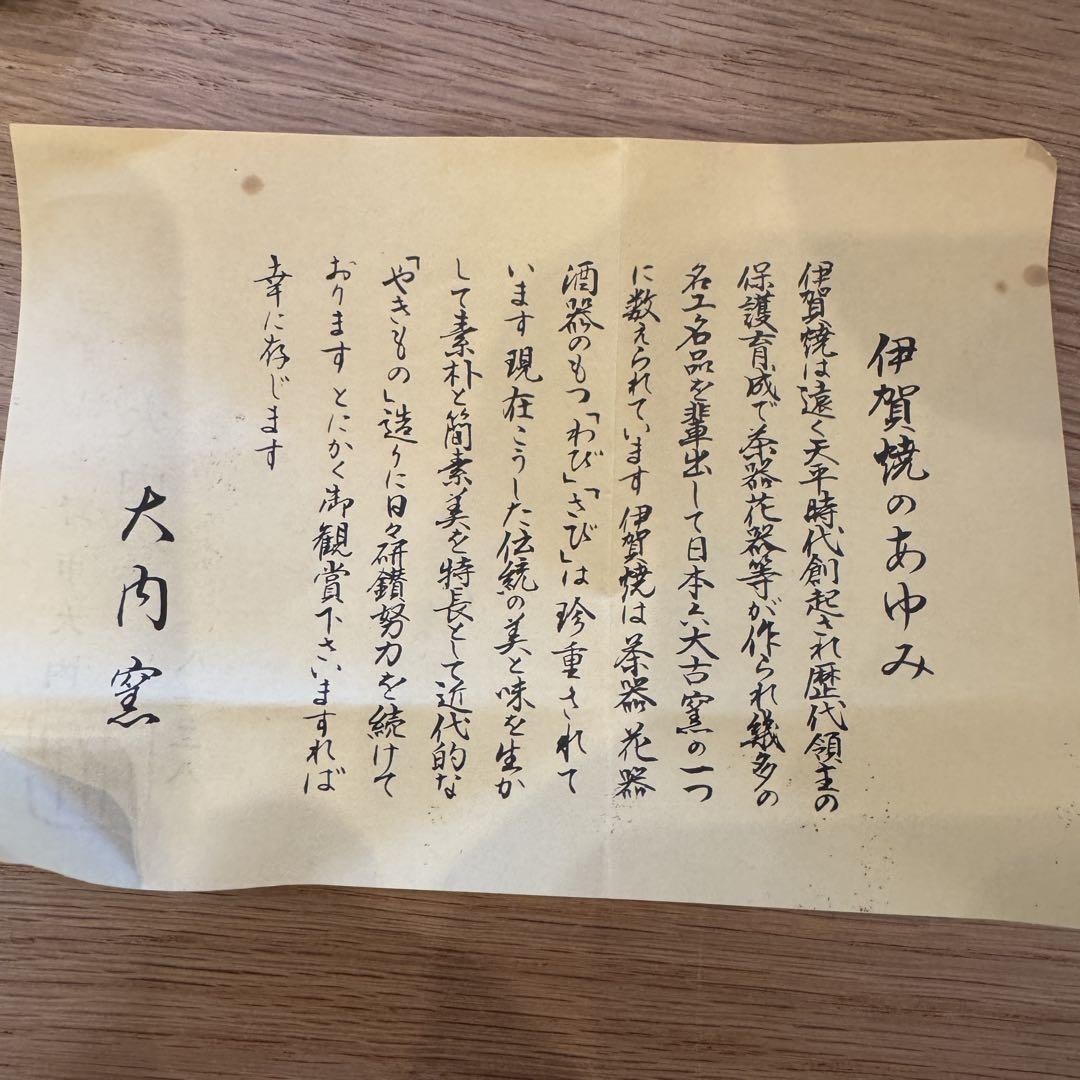 伊賀焼のあゆみ
伊賀焼は遠く天平時代創起され歴代領主の
保護育成で茶器花器等が作られ幾多の
名工名品を輩出して日本六大古窯の一つ
に数えられています 伊賀焼は茶器花器
酒器のもつ「わび」「さび」は珍重されて
います 現在こうした伝統の美と味を生か
して素朴と簡素美を特長として近代的な
「やきもの」造りに日々研鑚努力を続けて
おります とにかく御観賞下さいますれば
幸に存じます
大内窯